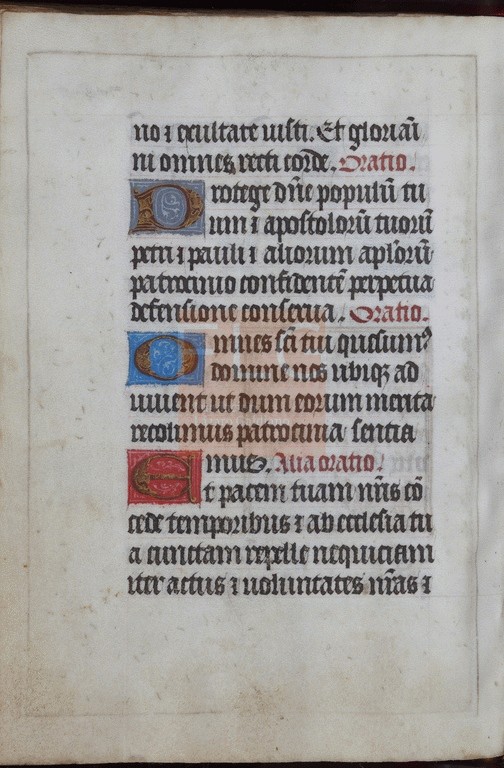 no ⁊ exultate iusti. Et gloriam̄
ni omnes recti corde. Oratio.
Protege dn̄e populū tu
um ⁊ apostolorū tuorū
petri ⁊ pauli ⁊ aliorum apl'orū
patrocinio confidentē perpetua
defensione conserua. Oratio.
Omnes sc̄i tui quesumꝰ
domine nos ubiqꝫ ad
iuuent ut dum eorum merita
recolimus patrocinia sentia
mus. Alia oratio.
Et pacem tuam nr̄is cō
cede temporibus ⁊ ab ecclesia tu
a cunctam repelle nequiciam
iter actus ⁊ uoluntates nr̄as ⁊